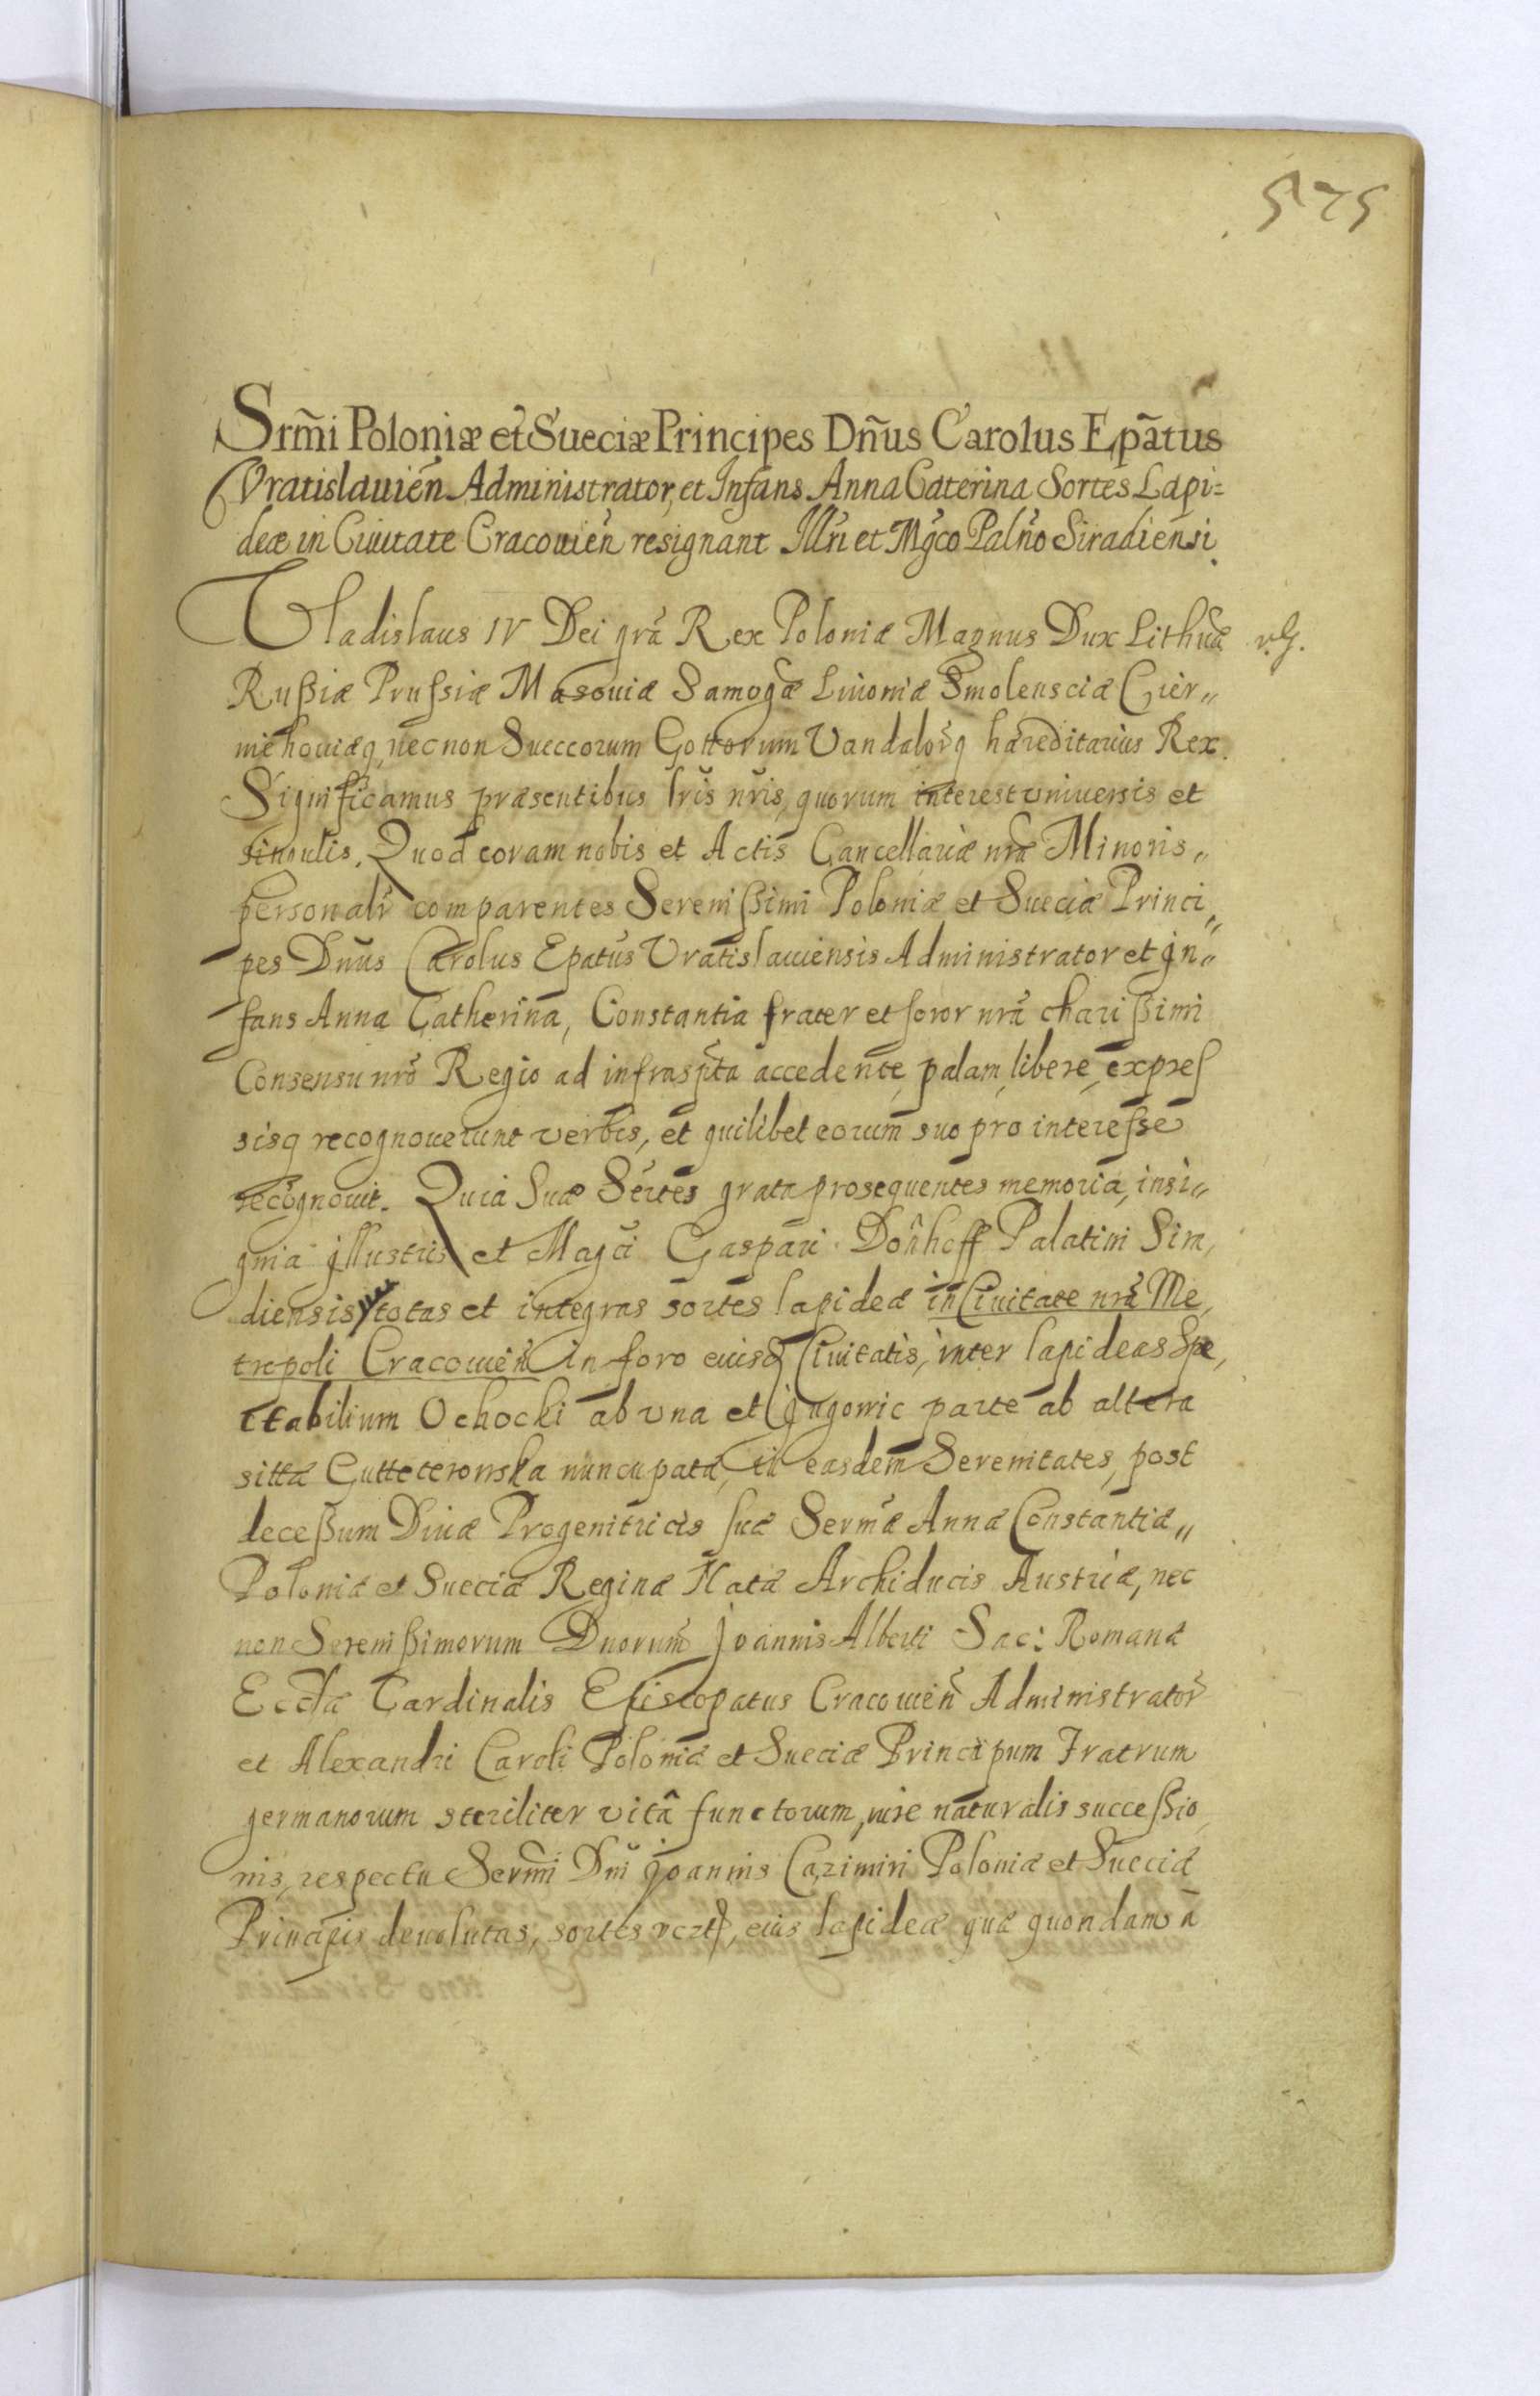 575
Srm̃i Poloniæ et Sueciæ Principes Dñus Carolus Epãtus
Vratislauień Administrator, et Infans Anna Caterina Sortes Lapi=
deæ in Ciuitate Cracouień resignant Illri et Mgco Palño Siradiensi.
Vladislaus IV Dei grã Rex Poloniæ Magnus Dux Lithuæ
Rußiæ Prussiæ Masouiæ Samogæ Liuoniæ Smolensciæ Czer„
niehouiæq, necnon Sueccorum Gottorum Vandalorq hæreditarius Rex.
Significamus præsentibus lris nris, quorum interest vniuersis et
singulis. Quod coram nobis et Actis Cancellariæ nræ Minoris„
personalr comparentes Serenißimi Poloniæ et Sueciæ Princi„
pes Dnus Carolus Epatus Vratislauiensis Administrator et In„
fans Anna Catherina, Constantia frater et soror nrã charißimi
Consensu nrõ Regio ad infraspta accedente, palam, libere, expres
sisq recognouerunt verbis, et quilibet eorum suo pro interesse
recognouit. Quia Suæ Sertes grata prosequentes memoria, insi„
gnia Illustris et Magci Gaspari Dönhoff Palatini Sira,
diensis totas et integras sortes lapideæ in Ciuitate nrã Me,
tropoli Cracouień in foro eiusd Ciuitatis, inter lapideas Spe,
ctabilium Ochocki ab vna et Gugowic parte ab altera
sittæ Gutteterowska nuncupatæ, in easdem Serenitates, post
deceßum Diuæ Progenitricis suæ Sermæ Annæ Constantiæ„
Poloniæ et Sueciæ Reginæ Natæ Archiducis Austriæ, nec
non Serenißimorum Dnorum Joannis Alberti Sac: Romanæ
Ecclæ Cardinalis Episcopatus Cracouień Administrator
et Alexandri Caroli Poloniæ et Sueciæ Principum Fratrum
germanorum steriliter vitâ functorum, iure naturalis succeßio,
nis, respectu Sermi Dni Joannis Cazimiri Poloniæ et Sueciæ
Principis deuolutas, sortes eius lapideæ quæ quondam à